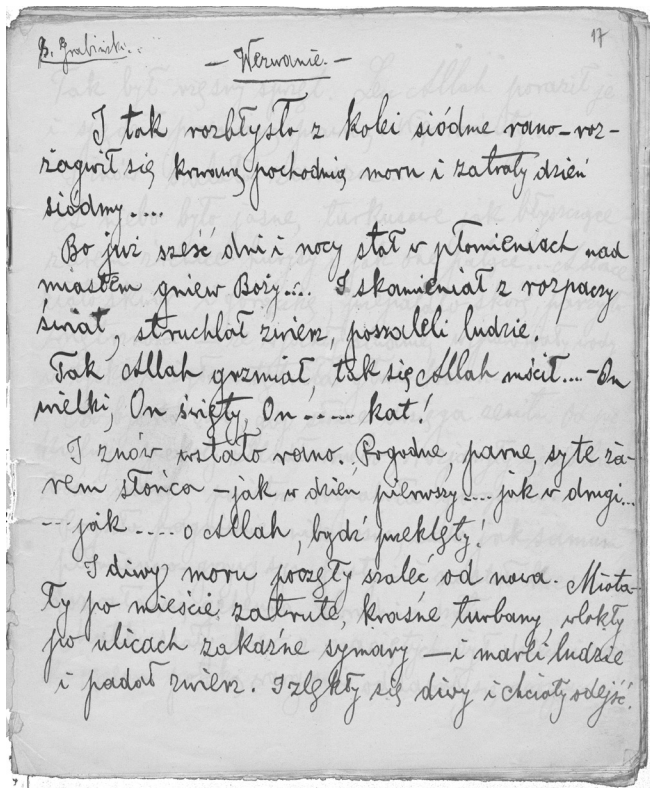 S. Grabiński.
17
— Wezwanie. —
I tak rozbłysło z kolei siódme rano – roz-
żagwił się krwawą pochodnią moru i zatraty dzień
siódmy....
Bo już sześć dni i nocy stał w płomieniach nad
miastem gniew Boży.... I skamieniał z rozpaczy
świat, struchlał zwierz, poszaleli ludzie.
Tak Allah grzmiał, tak się Allah mścił.... – On
wielki, On święty, On ..... kat!
I znów wstało rano. Pogodne, parne, syte ża-
rem słońca – jak w dzień pierwszy .... jak w drugi...
... jak .... o Allah, bądź przeklęty!
I diwy moru poczęły szaleć od nowa. Miota-
ły po mieście zatrute, kraśne turbany, wlokły
po ulicach zakaźne symary – i marli ludzie
i padał zwierz. I zlękły się diwy i chciały odejść.